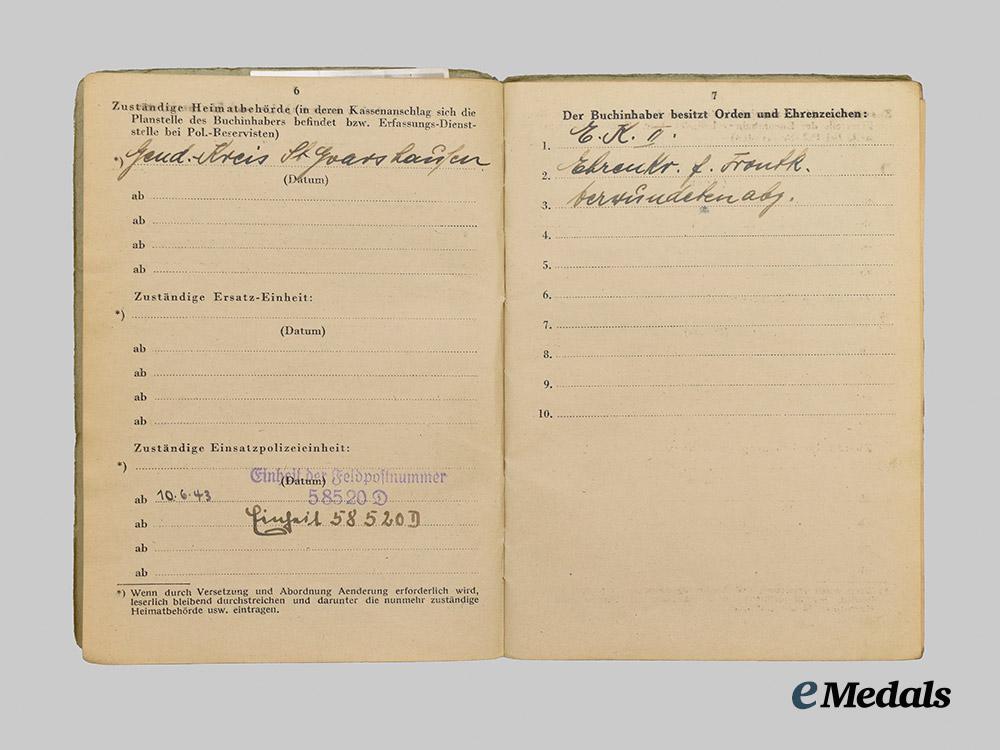 6
Zuständige Heimatbehörde (in deren Kassenanschlag sich die
Planstelle des Buchinhabers befindet bzw. Erfassungs-Dienst-
stelle bei Pol.-Reservisten)
*) Gend.-Kreis St Goarshausen
(Datum)
ab
ab
ab
ab
Zuständige Ersatz-Einheit:
*)
(Datum)
ab
ab
ab
ab
Zuständige Einsatzpolizeieinheit:
*)
Einheit der Feldpostnummer
(Datum)
ab 10.6.43 58520 D
ab Einheit 58520 D
ab
ab
*) Wenn durch Versetzung und Abordnung Aenderung erforderlich wird,
leserlich bleibend durchstreichen und darunter die nunmehr zuständige
Heimatbehörde usw. eintragen.
7
Der Buchinhaber besitzt Orden und Ehrenzeichen:
1. E. K. II.
2. Ehrenkr. f. Frontk.
3. Verwundetenabz.
4.
5.
6.
7.
8.
9.
10.
eMedals